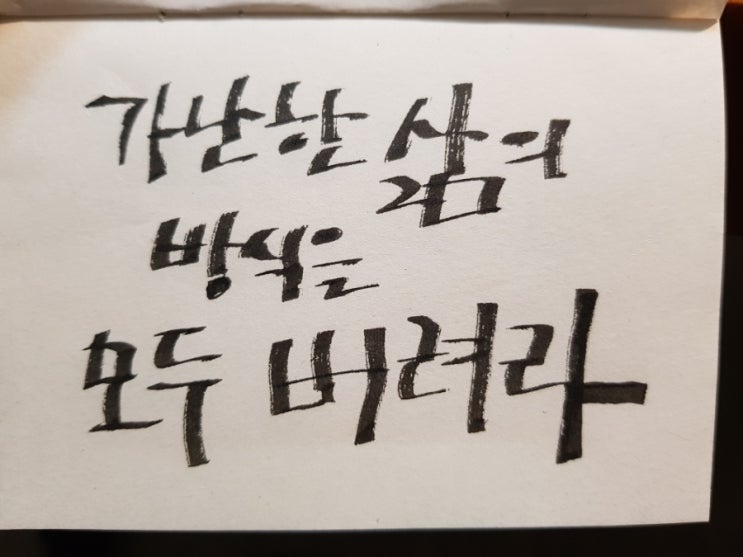 가난한 삶의
방식을
모두 버려라